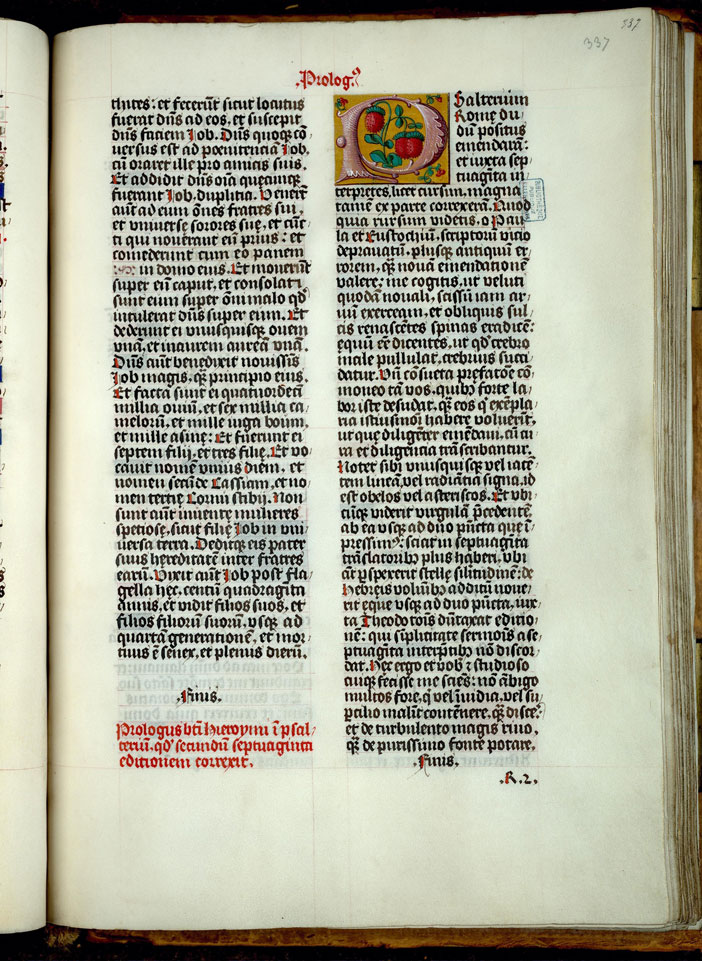 337
337
Prolog⁹
thites: et fecerūt sicut locutus
fuerat dn̄s ad eos, et suscepit
dn̄s faciem Job. Dn̄s quoq̨ cō/
uersus est ad poenitenciā Job,
cū oraret ille pro amicis suis.
Et addidit dn̄s oīa quęcunq̨
fuerant Job, duplitia. Venerūt
aūt ad eum ōnes fratres sui,
et vniuersę sorores suę, et cūc/
ti qui nouerant eū prius: et
comederunt cum eo panem
in domo eius. Et mouerūt
super eum caput, et consolati
sunt eum super ōni malo qd̄
intulerat dn̄s super eum. Et
dederunt ei vnusquisq̨ ouem
vnā, et inaurem aureā vnā.
Dn̄s aūt benedixit nouissīs
Job magis, q̨̄ principio eius.
Et facta sunt ei quatuordeci
millia ouiū, et sex millia ca/
melorū, et mille iuga boum,
et mille asinę: Et fuerunt ei
septem filij, et tres filię. Et vo/
cauit nomē vnius Diem, et
nomen secūdę Cassiam, et no
men tertię Cornu stibij. Non
sunt aūt inuentę mulieres
spetiosę, sicut filię Job in vni/
uersa terra. Deditq̨ eis pater
suus hereditatē inter fratres
earū. Vixit aūt Job post fla/
gella hęc, centū quadragīta
annis, et vidit filios suos, et
filios filiorū suorū, vsq̨ ad
quartā generationē, et mor/
tuus ē senex, et plenus dierū.
.Finis.
Prologus btī Hieronymi ī psal/
terium, qd̄ secundū septuaginta
editionem correxit.
Psalterium
Romę du/
dū positus
emendarā:
et iuxta sep/
tuagīta in/
terpretes, licet cursim, magna
tamē ex parte correxerā. Quod
quia rursum videtis, o Pau/
la et Eustochiū, scriptorū vicio
deprauatū, plusq̨ antiquū er/
rorem, q̨̄ nouā emendationē
valere: me cogitis, ut veluti
quodā nouali, scissū iam ar/
uū exerceam, et obliquis sul/
cis renascētes spinas eradicē:
equū eē dicentes, ut qd̄ crebro
male pullulat, crebrius succi/
datur. Vn̄ cōsueta prefatōe cō/
moneo tā vos, quibꝫ forte la/
bor iste desudat, q̨̄ eos q̄ exēpla/
ria istiusmōi habere voluerīt,
ut quę diligēter emēdaui, cū cu/
ra et diligentia trāscribantur.
Notet sibi vnusquisq̨ vel iacē/
tem lineā, vel radiātia signa, id
est obelos vel asteriscos. Et vbi
cūq̨ viderit virgulā p̄cedentē,
ab ea vsq̨ ad duo pūcta que ī/
pressim⁹: sciat in septuagīta
trāslatoribꝫ plus haberi. Vbi
āt p̄spexerit stellę silitudinē: de
Hebreis volūībꝫ additū noue/
rit ęque vsq̨ ad duo pūcta, iux/
ta Theodotōis dūtaxat editio/
nē: qui sīplititate sermonis a se/
ptuagīta interptībꝫ nō discor/
dat. Hęc ergo et vob̄ ꝛ studioso
cuiq̨ fecisse me sciēs: nō ābigo
multos fore, q̄ vel īuidia, vel su/
pcilio malūt contēnere, q̨̄ discē:
et de turbulento magis riuo,
q̨̄ de purissimo fonte potare.
.Finis.
.R.2.